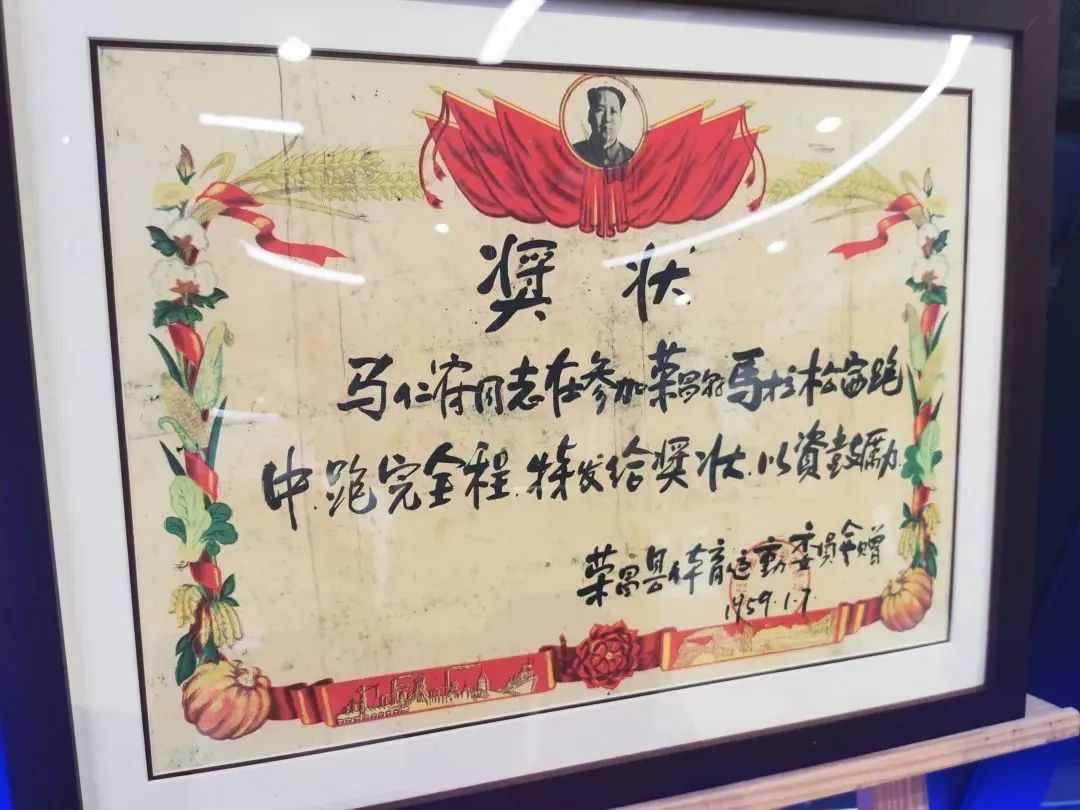 奖状
马仁同志在参加荣昌馬拉松赛跑
中.跑完全程.特发给奖状.以資鼓励
荣昌县体育运动委员会赠
1959.1.7.